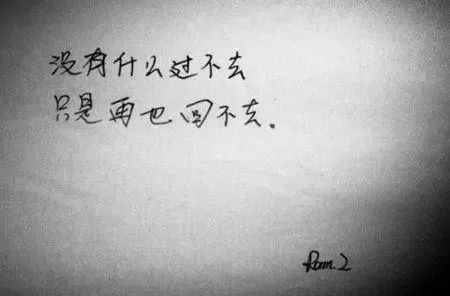 没有什么过不去
只是再也回不去。
Room.2